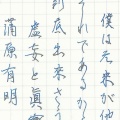 僕は元来が他
それであるから
到底生来さう
虚妄と眞實
蒲原有明